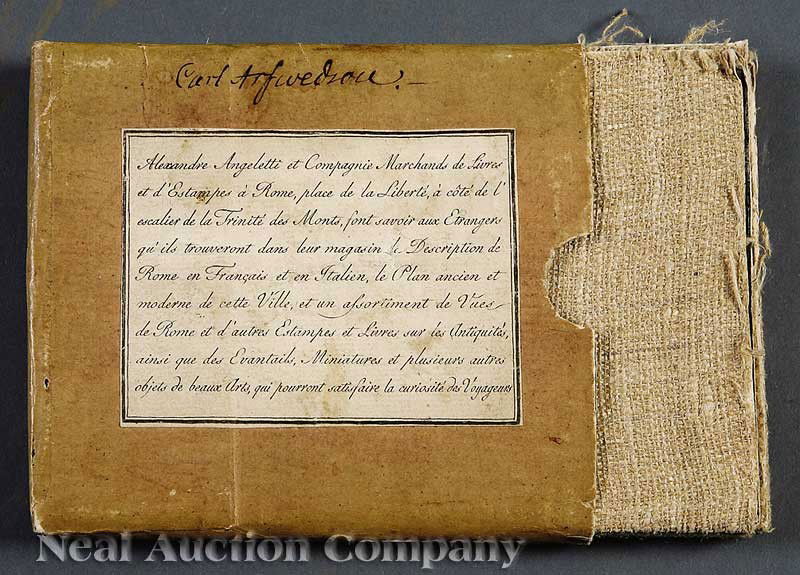 Carl Arfwedson.
Alexandre Angeletti et Compagnie Marchands de Livres
et d'Estampes à Rome, place de la Liberté, à côté de l'
escalier de la Trinité des Monts, font savoir aux Etrangers
qu'ils trouveront dans leur magasin la Description de
Rome en Français et en Italien, le Plan ancien et
moderne de cette Ville, et un assortiment de Vues
de Rome et d'autres Estampes et Livres sur les Antiquités,
ainsi que des Evantails, Miniatures et plusieurs autres
objets de beaux Arts, qui pourront satisfaire la curiosité des Voyageurs
Neal Auction Company